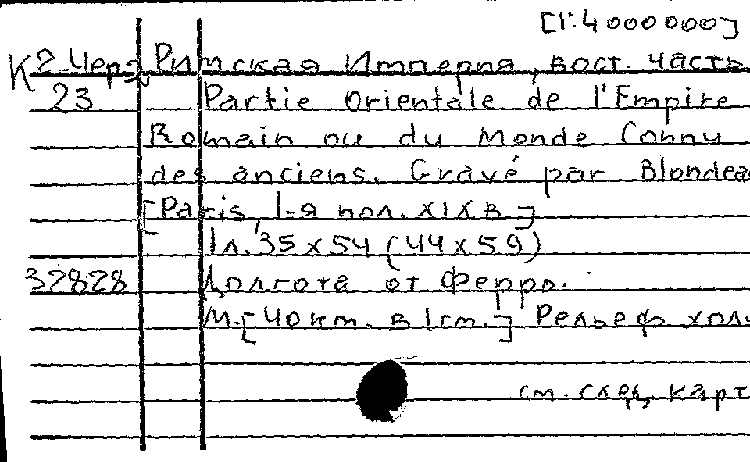 [1:4000000]
К 2 Чер Римская Империя, вост. часть
23 Partie Orientale de l'Empire
Romain ou du Monde Connu
des anciens. Gravé par Blondea
[Paris, 1-я пол. XIX в.]
1 л. 35 x 54 (44 x 59)
32828 Долгота от Ферро.
М. [40 км. в 1 см.] Рельеф хол.
см. след. карт